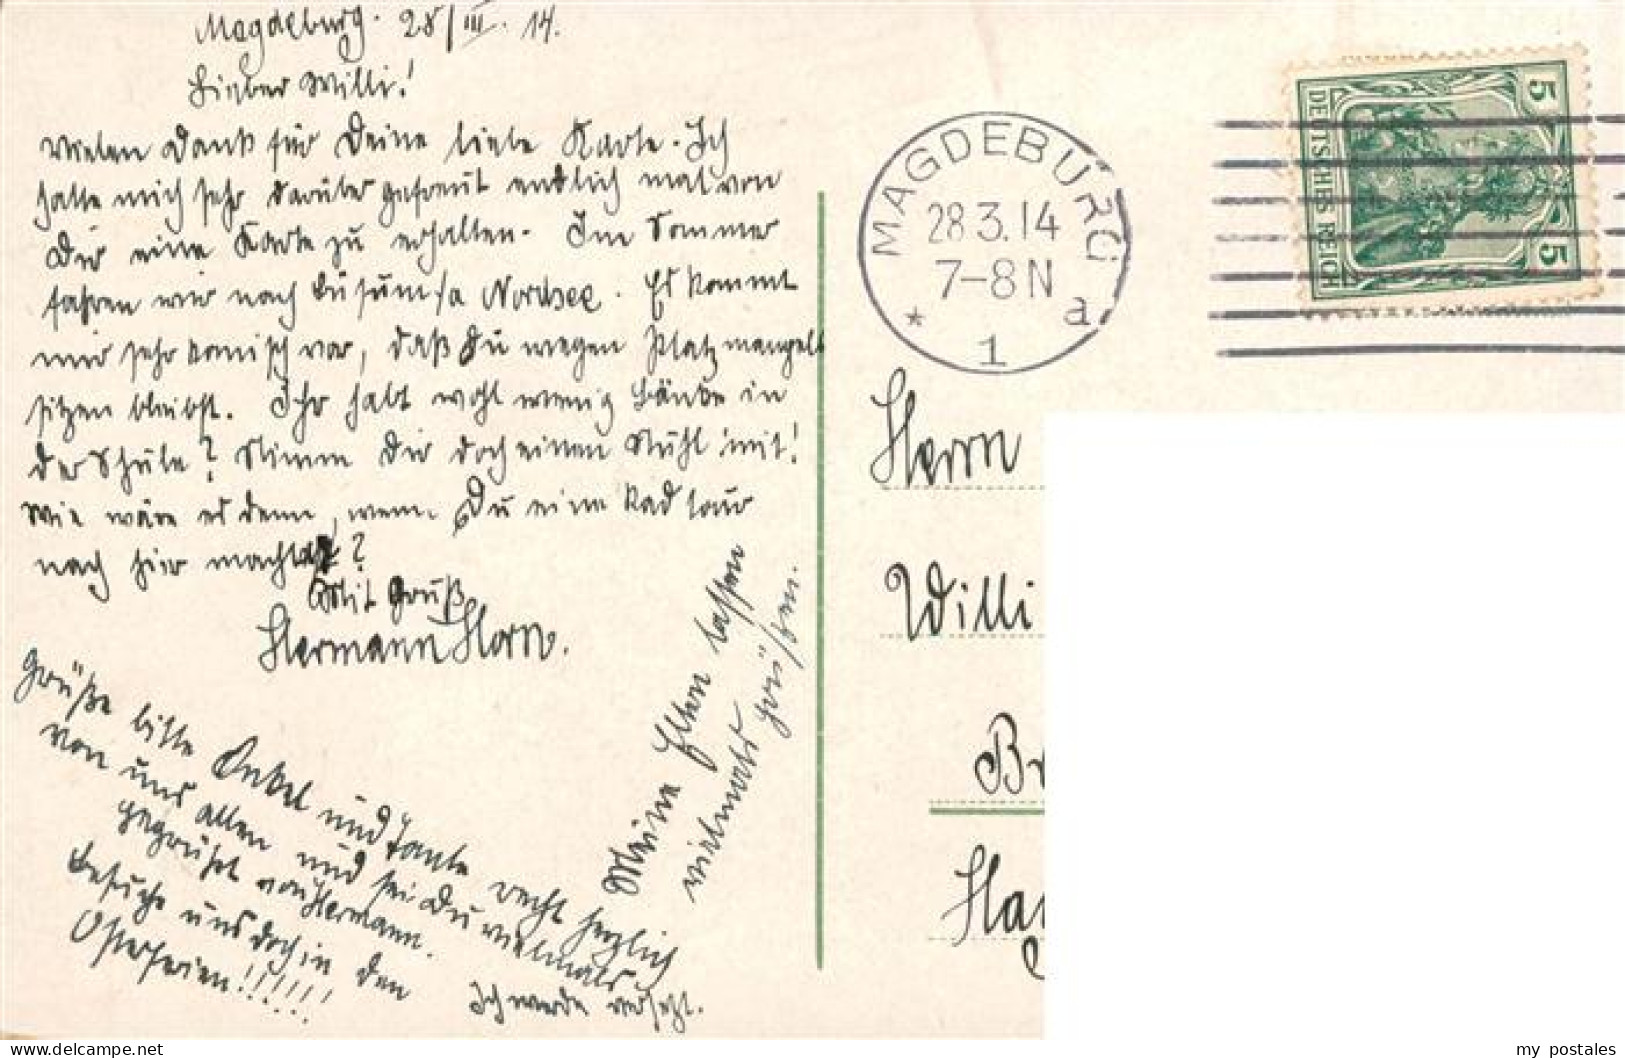 Magdeburg. 28/III. 14.
Lieber Willi!
Vielen Dank für Deine liebe Karte. Ich
hatte mich sehr darüber gefreut endlich mal von
Dir eine Karte zu erhalten. Im Sommer
fahren wir nach Büsum/a Nordsee. Es kommt
mir sehr komisch vor, daß Du wegen Platzmangels
sitzen bleibst. Ihr habt wohl wenig Bänke in
der Schule? Nimm Dir doch einen Stuhl mit!
Wie wäre es denn, wenn Du eine Radtour
nach hier machtest?
Mit Gruß
Hermann Horn.
Grüße bitte Onkel und Tante recht herzlich
von uns allen und sei Du vielmals
gegrüßt von Hermann.
Besuche uns doch in den
Osterferien!!!!!!
Ich werde versetzt.
Meine Eltern lassen
vielmals grüßen.
MAGDEBURG
28 3.14
7-8 N
* 1 a
5 DEUTSCHES REICH 5
Herrn
Willi
my postales